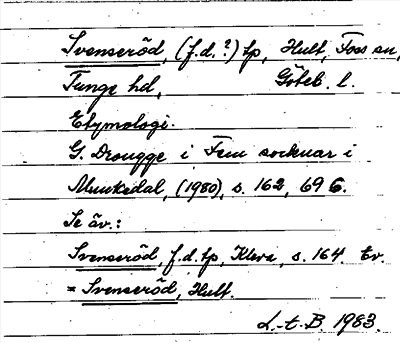 Svenseröd, (f.d.?) tp, Hult, Foss sn,
Tunge hd, Göteb. l.
Etymologi.
G. Drougge i Fem socknar i
Munkedal, (1980), s. 162, 696.
Se äv.:
Svenseröd, f.d. tp, Kleva, s. 164. tv.
= Svenseröd, Hult.
L.-t. B. 1983.